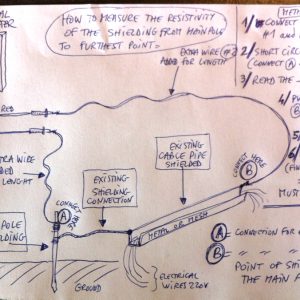 AL
TER
HOW TO MEASURE THE RESISTIVITY
OF THE SHIELDING FROM MAIN POLE
TO FURTHEST POINT =
EXTRA WIRE (#2)
ADDED FOR LENGTH
RED
TRA WIRE
DED
LENGHT
CONNECT HERE
A
POLE
LDING
EXISTING
SHIELDING
CONNECTION
EXISTING
CABLE PIPE
SHIELDED
METAL OR MESH
CONNECT HERE
B
B
ELECTRICAL
WIRES 220V
GROUND
METH
1/ CONNECT
#1 and
2/ SHORT CIRC
(CONNECT A
3/ READ THE
4/
5/
6/
MUST
A = CONNECTION FOR
B = " "
POINT OF SHI
THE MAIN